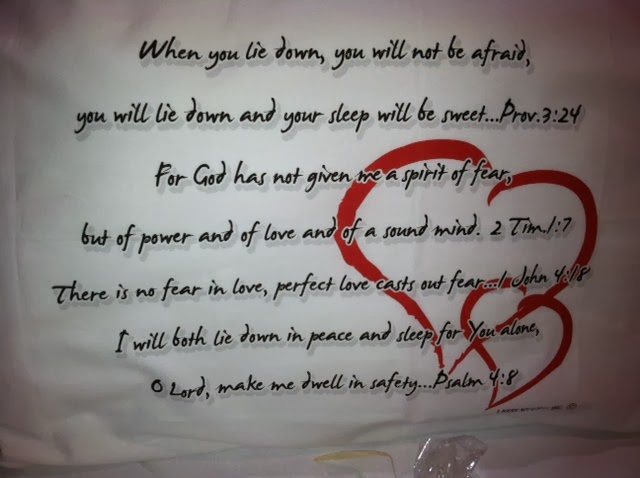 When you lie down, you will not be afraid,
you will lie down and your sleep will be sweet...Prov.3:24
For God has not given me a spirit of fear,
but of power and of love and of a sound mind. 2 Tim.1:7
There is no fear in love, perfect love casts out fear...1 John 4:18
I will both lie down in peace and sleep for You alone,
O Lord, make me dwell in safety...Psalm 4:8